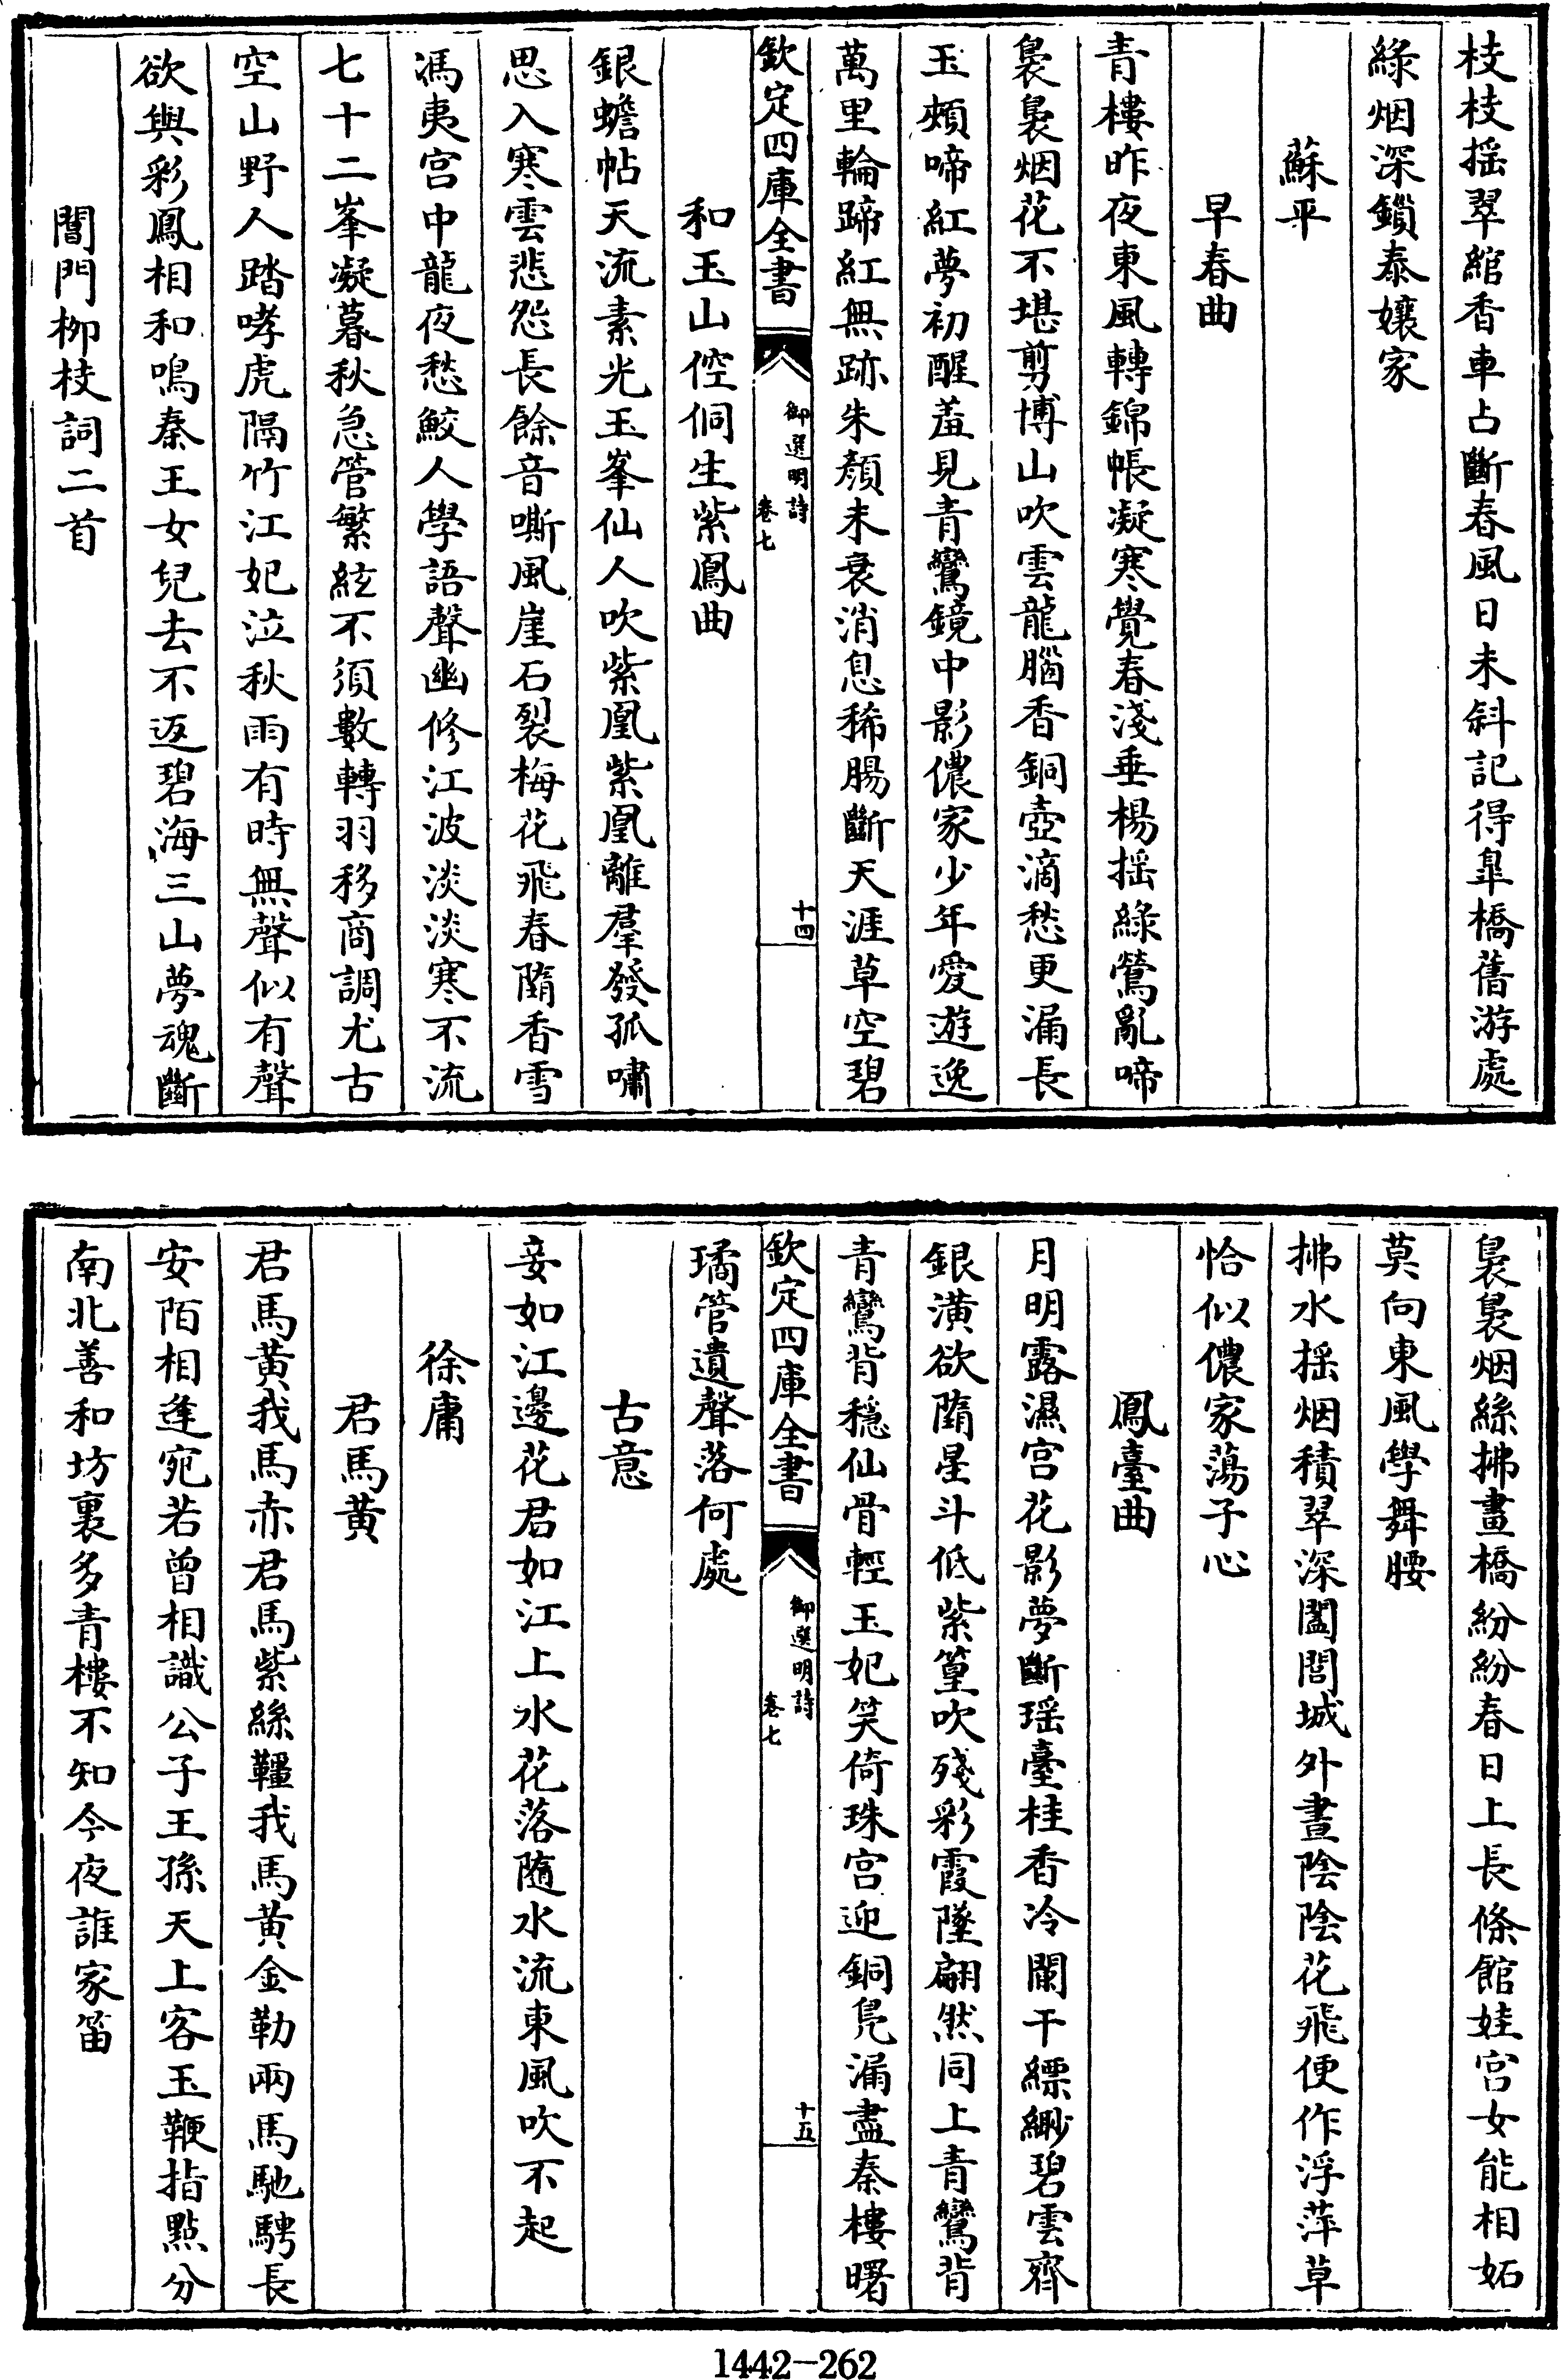 枝枝揺翠綰香車占斷春風日未斜記得臯橋舊游處
綠烟深鎖泰孃家
蘇平
早春曲
青樓昨夜東風轉錦帳凝寒覺春淺垂楊揺綠鶯亂啼
裊裊烟花不堪剪博山吹雲龍腦香銅壺滴愁更漏長
玉頰啼紅夢初醒羞見青鸞鏡中影儂家少年愛遊逸
萬里輪蹄紅無跡朱顏未衰消息稀腸斷天涯草空碧
欽定四庫全書
御選明詩
卷七
十四
和玉山倥侗生紫鳳曲
銀蟾帖天流素光玉峯仙人吹紫凰紫凰離羣發孤嘯
思入寒雲悲怨長餘音嘶風崖石裂梅花飛春隋香雪
馮夷宫中龍夜愁鮫人學語聲幽修江波淡淡寒不流
七十二峯凝暮秋急管繁絃不須數轉羽移商調尤古
空山野人踏哮虎隔竹江妃泣秋雨有時無聲似有聲
欲與彩鳳相和鳴秦王女兒去不返碧海三山夢魂斷
閶門柳枝詞二首
裊裊烟絲拂畫橋紛紛春日上長條館娃宫女能相妬
莫向東風學舞腰
拂水揺烟積翠深闔閭城外晝陰陰花飛便作浮萍草
恰似儂家蕩子心
鳳臺曲
月明露濕宫花影夢斷瑶臺桂香冷闌干縹緲碧雲齊
銀潢欲隋星斗低紫篁吹殘彩霞墜翩然同上青鸞背
青鸞背穩仙骨輕玉妃笑倚珠宫迎銅鳬漏盡秦樓曙
欽定四庫全書
御選明詩
卷七
十五
璚管遺聲落何處
古意
妾如江邊花君如江上水花落隨水流東風吹不起
徐庸
君馬黄
君馬黄我馬赤君馬紫絲韁我馬黄金勒兩馬馳騁長
安陌相逢宛若曾相識公子王孫天上客玉鞭指點分
南北善和坊裏多青樓不知今夜誰家笛
1442-262